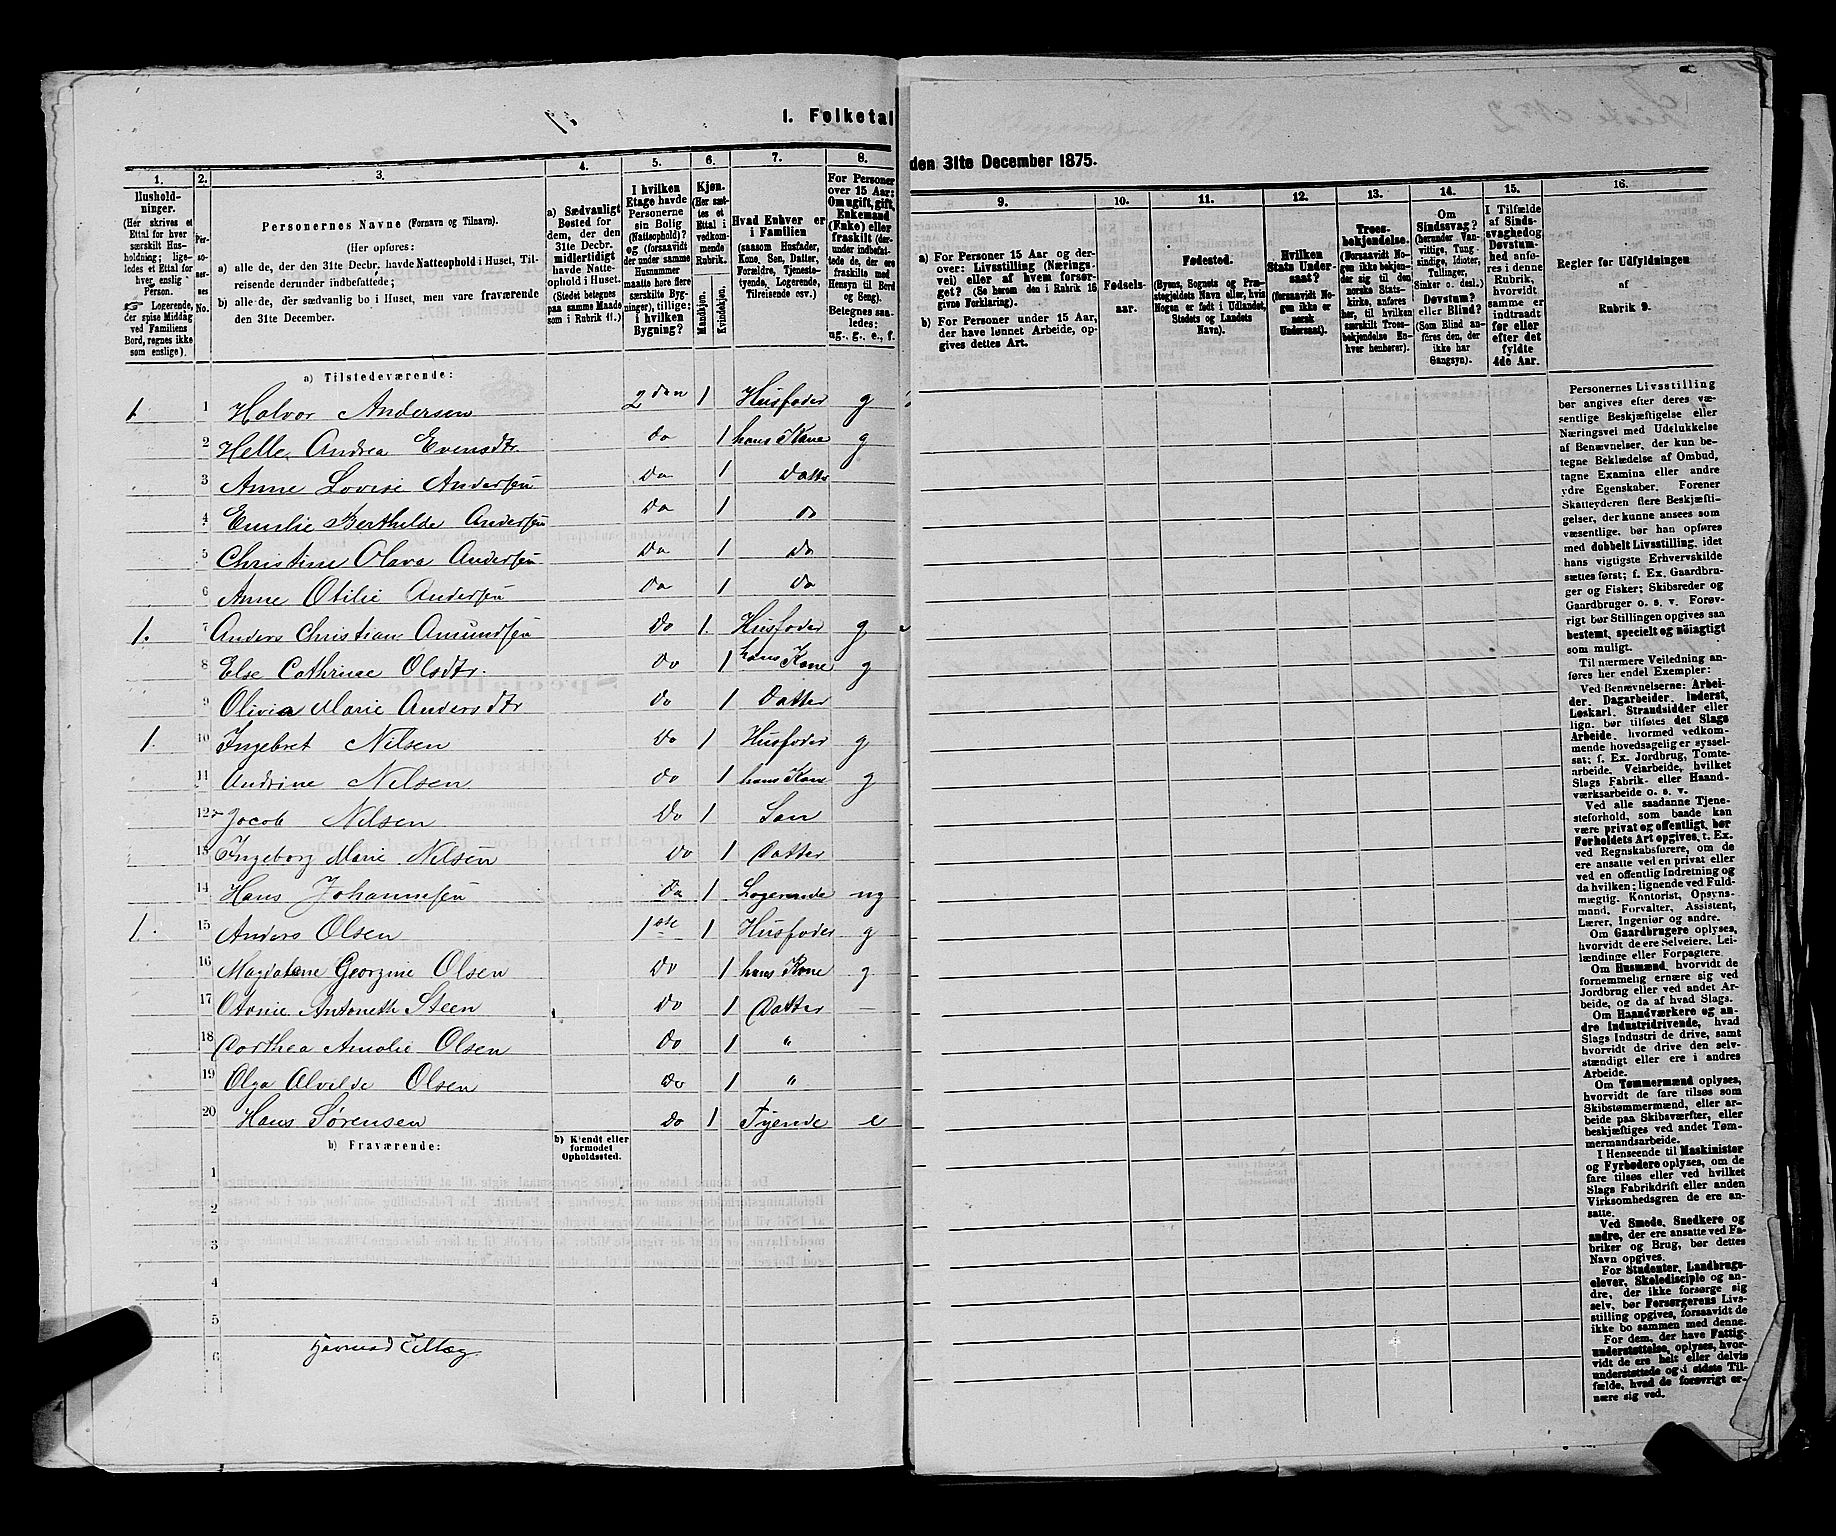 Liste No 2
1. Folketal
den 31te December 1875.
1.
2.
3.
4.
5.
6.
7.
8.
9.
10.
11.
12.
13.
14.
15.
16.
Husholdninger.
(Her skrives et
Ettal for hver
særskilt Husholdning;
ligeledes et Ettal for
hver enslig
Person.
☞ Logerende,
der spise Middag
ved Familiens
Bord, regnes ikke
som enslige).
Personernes No.
Personernes Navne (Fornavn og Tilnavn).
(Her opføres:
a) alle de, der den 31te Decbr. havde Natteophold i Huset, Tilreisende
derunder indbefattede;
b) alle de, der sædvanlig bo i Huset, men vare fraværende
den 31te December.
a) Sædvanligt
Bosted for
dem, der den
31te Decbr.
midlertidigt
havde Natteophold
i Huset.
(Stedet betegnes
paa samme Maade
som i Rubrik 11.)
I hvilken
Etage havde
Personerne
sin Bolig
(Natteophold)?
og (forsaavidt
der under samme
Husnummer
maatte høre flere
særskilte Bygninger),
tillige:
i hvilken
Bygning?
Kjøn.
(Her sættes
et
Ettal i
vedkommende
Rubrik.
Mandkjøn.
Kvindekjøn.
Hvad Enhver er
i Familien
(saasom Husfader,
Kone, Søn, Datter,
Forældre, Tjenestetyende,
Logerende,
Tilreisende osv.)
For Personer
over 15 Aar:
Om ugift, gift,
Enkemand
(Enke) eller
fraskilt (derunder
indbefattede
de, der ere
fraskilte med
Hensyn til Bord
og Seng).
Betegnes saaledes:
ug., g., e., f.
a) For Personer 15 Aar og derover:
Livsstilling (Næringsvei)
eller af hvem forsørget?
(Se herom den i Rubrik 16
givne Forklaring).
b) For Personer under 15 Aar,
der have lønnet Arbeide, opgives
dettes Art.
Fødselsaar.
Fødested.
(Byens, Sognets og Præstegjeldets
Navn eller, hvis
Nogen er født i Udlandet,
Stedets og Landets
Navn).
Hvilken
Stats Undersaat?
(forsaavidt Nogen
ikke er
norsk
Undersaat).
Troesbekjendelse.
(Forsaavidt Nogen
ikke bekjender
sig til den
norske Statskirke,
anføres
her, til hvilken
særskilt Troesbekjendelse
Enhver
henhører).
Om
Sindssvag?
(herunder Vanvittige,
Tungsindige,
Idioter,
Tullinger,
Sinker o. desl.)
Døvstum?
eller Blind?
(Som Blind anføres
den, der
ikke har
Gangsyn).
I Tilfælde
af Sindssvaghed
og
Døvstumhed
anføres
i denne
Rubrik,
hvorvidt
samme er
indtraadt
før eller
efter det
fyldte
4de Aar.
Regler for Udfyldningen
af
Rubrik 9.
a) Tilstedeværende:
1 1 Halvor Andersen 2den 1 Husfader g
2 Helle Andrea Evensdtr. do 1 hans Kone g
3 Anne Lovise Andersen Do 1 Datter
4 Emilie Berthilde Andersen Do 1 do
5 Christine Olava Andersen Do 1 Do
6 Anne Otilie Andersen Do 1 Do
1. 7 Anders Christian Amundsen Do 1. Husfader g
8 Else Cathrine Olsdtr. Do 1 hans Kone g
9 Olivia Marie Andersdtr Do 1 Datter
1. 10 Ingebret Nilsen Do 1 Husfader g
11 Andrine Nilsen Do 1 hans Kone g
12 Jacob Nilsen Do 1 Søn
13 Ingeborg Marie Nilsen Do 1 Datter
14 Hans Johannesen Do 1 Logerende ug
1. 15 Anders Olsen 1ste 1 Husfader g
16 Magdalene Georgine Olsen Do 1 hans Kone g
17 Antoneth Steen Do 1 Datter —
18 Dorthea Amalie Olsen Do 1 "
19 Olga Alvilde Olsen Do 1 "
20 Hans Sørensen Do 1 Tyende e
b) Fraværende:
b) Kjendt eller
formodet
Opholdssted.
1
2
3
4
5
6
hermed Tillæg
Personernes Livsstilling
bør angives efter deres væsentlige
Beskjæftigelse eller
Næringsvei med Udelukkelse
af Benævnelser, der kun betegne
Beklædelse af Ombud,
tagne Examina eller andre
ydre Egenskaber. Forener
Skatteyderen flere Beskjæftigelser,
der kunne ansees som
væsentlige, bør han opføres
med dobbelt Livsstilling, idet
hans vigtigste Erhvervskilde
sættes først; f. Ex. Gaardbruger
og Fisker; Skibsreder og
Gaardbruger o. s. v. Forøvrigt
bør Stillingen opgives saa
bestemt, specielt og nøiagtigt
som muligt.
Til nærmere Veiledning anføres
her endel Exempler:
Ved Benævnelserne: Arbeider,
Dagarbeider, Inderst,
Løskarl, Strandsidder eller
lign. bør tilføies det Slags
Arbeide, hvormed vedkommende
hovedsagelig er sysselsat;
f. Ex. Jordbrug, Tomtearbeide,
Veiarbeide, hvilket
Slags Fabrik- eller Haandværksarbeide
o. s. v.
Ved alle saadanne Tjenesteforhold,
som baade kan
være privat og offentligt, bør
Forholdets Art opgives, t. Ex.
ved Regnskabsførere, om de
ere ansatte ved en privat eller
ved en offentlig Indretning og
da hvilken; lignende ved Fuldmægtig,
Kontorist, Opsynsmand,
Forvalter, Assistent,
Lærer, Ingeniør og andre.
Om Gaardbrugere oplyses,
hvorvidt de ere Selveiere, Leilændinge
eller Forpagtere.
Om Husmænd, hvorvidt de
fornemmelig ernære sig ved
Jordbrug eller ved andet Arbeide,
og da af hvad Slags.
Om Haandværkere og andre
Industridrivende, hvad
Slags Industri de drive, samt
hvorvidt de drive den selvstændigt
eller ere i andres
Arbeide.
Om Tømmermænd oplyses,
hvorvidt de fare tilsøs som
Skibstømmermænd, eller arbeide
paa Skibsværfter, eller
beskjæftiges ved andet Tømmermandsarbeide.
I Henseende til Maskinister
og Fyrbødere oplyses, om de
fare tilsøs eller ved hvilket
Slags Fabrikdrift eller anden
Virksomhedsgren de ere ansatte.
Ved Smede, Snedkere og
andre, der ere ansatte ved Fabriker
og Brug, bør dettes
Navn opgives.
For Studenter, Landbrugselever,
Skoledisciple og andre,
der ikke forsørge sig
selv, bør Forsørgerens Livsstilling
opgives, forsaavidt de
ikke bo sammen med denne.
For dem, der have Fattigunderstøttelse,
oplyses, hvorvidt
de ere helt eller delvis
understøttede og i sidste Tilfælde,
hvad de forøvrigt ernære
sig ved.